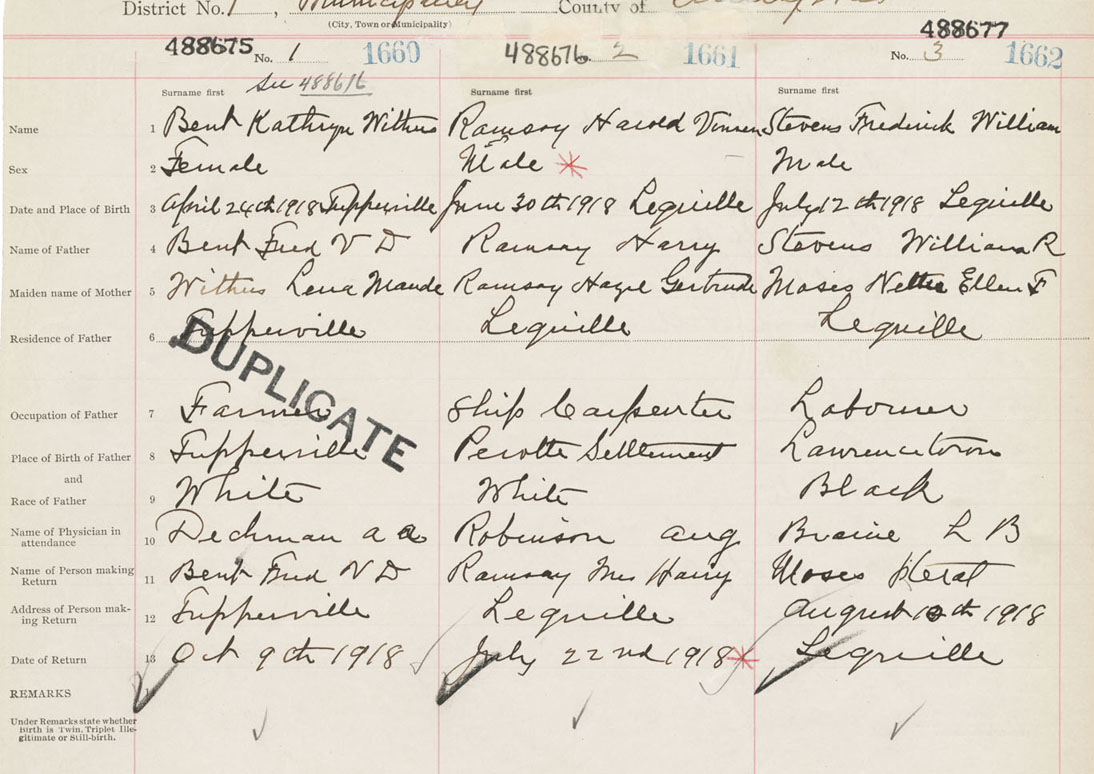 District No. 1, Municipality County of
(City, Town or Municipality)
488675 No. 1 1660 488676 2 1661 488677 No. 3 1662
See 488616
Surname first Surname first Surname first
Name 1 Bent Kathryn Withers Ramsay Harold Stevens Frederick William
Sex 2 Female Male Male
Date and Place of Birth 3 April 24th 1918 Tupperville June 30th 1918 Lequille July 12th 1918 Lequille
Name of Father 4 Bent Fred V D Ramsay Harry Stevens William R
Maiden name of Mother 5 Withers Lena Maude Ramsay Hazel Gertrude Moses Nettie Ellen F
Residence of Father 6 Tupperville Lequille Lequille
DUPLICATE
Occupation of Father 7 Farmer Ship Carpenter Labourer
Place of Birth of Father 8 Tupperville Perotte Settlement Lawrencetown
and
Race of Father 9 White White Black
Name of Physician in
attendance 10 Dechman a a Robinson aug L B
Name of Person making
Return 11 Bent Fred V D Ramsay Mrs Harry Moses
Address of Person mak-
ing Return 12 Tupperville Lequille August th 1918
Date of Return 13 Oct 9th 1918 July 22nd 1918 Lequille
REMARKS
Under Remarks state whether
Birth is Twin. Triplet Ille-
gitimate or Still-birth.